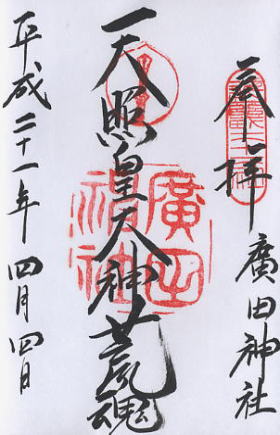 奉拝 廣田神社
天照皇大神荒魂
平成二十一年四月四日
廣田神社